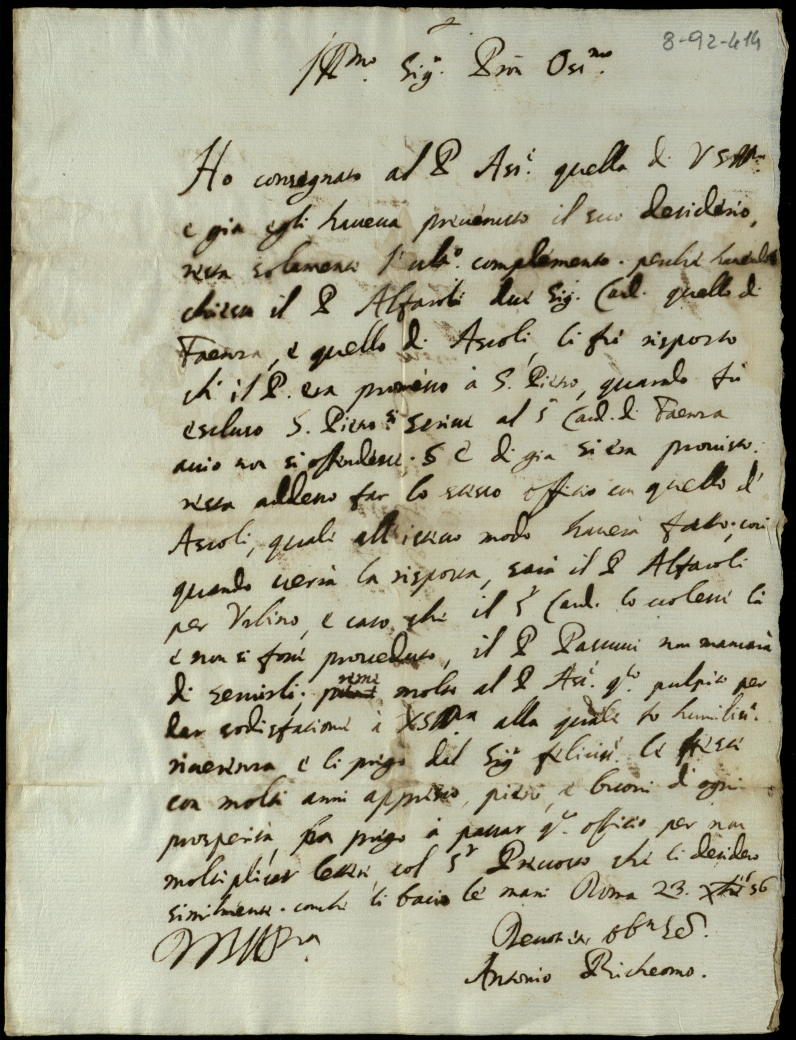 8-92-414
Ill.mo Sig.r Pron Oss.mo
Ho consegnato al P Assi.e quella di VS Ill.ma
e gia egli haueua preuenuto il suo desiderio,
resta solamente l'ult.o complemento. perche hauendo
chiesto il P Alfaroli due Sig. Card. quello di
Faenza, e quello di Ascoli, li fu risposto
che il P. era promesso à S. Pietro, quando fu
escluso S. Pietro si scrisse al S.r Card. di Faenza
accio non si offendesse. S E di gia si era prouisto.
resta adesso far lo stesso offitio con quello d'
Ascoli, quale all'istesso modo hauerà fatto. così
quando uerrà la risposta, sarà il P Alfaroli
per Vrbino, e caso che il S.r Card. lo uolesse là
e non si fosse proueduto, il P non mancarà
di seruirli. preme molto al P Assi.e q.to pulpito per
dar sodisfatione à VS Ill.ma alla quale fo humiliss.a
riuerenza e li prego dal Sig.r felicis.e le feste
con molti anni appresso, pieni, e buoni di ogni
prosperità, prego à passar q.o offitio per non
moltiplicar lettere col S.r Preuosto che li desidero
similmente. conche li bacio le mani Roma 23. Xbre 56
D VS Ill.ma
Deuotiss. obb.mo Se.
Antonio Richeomo.